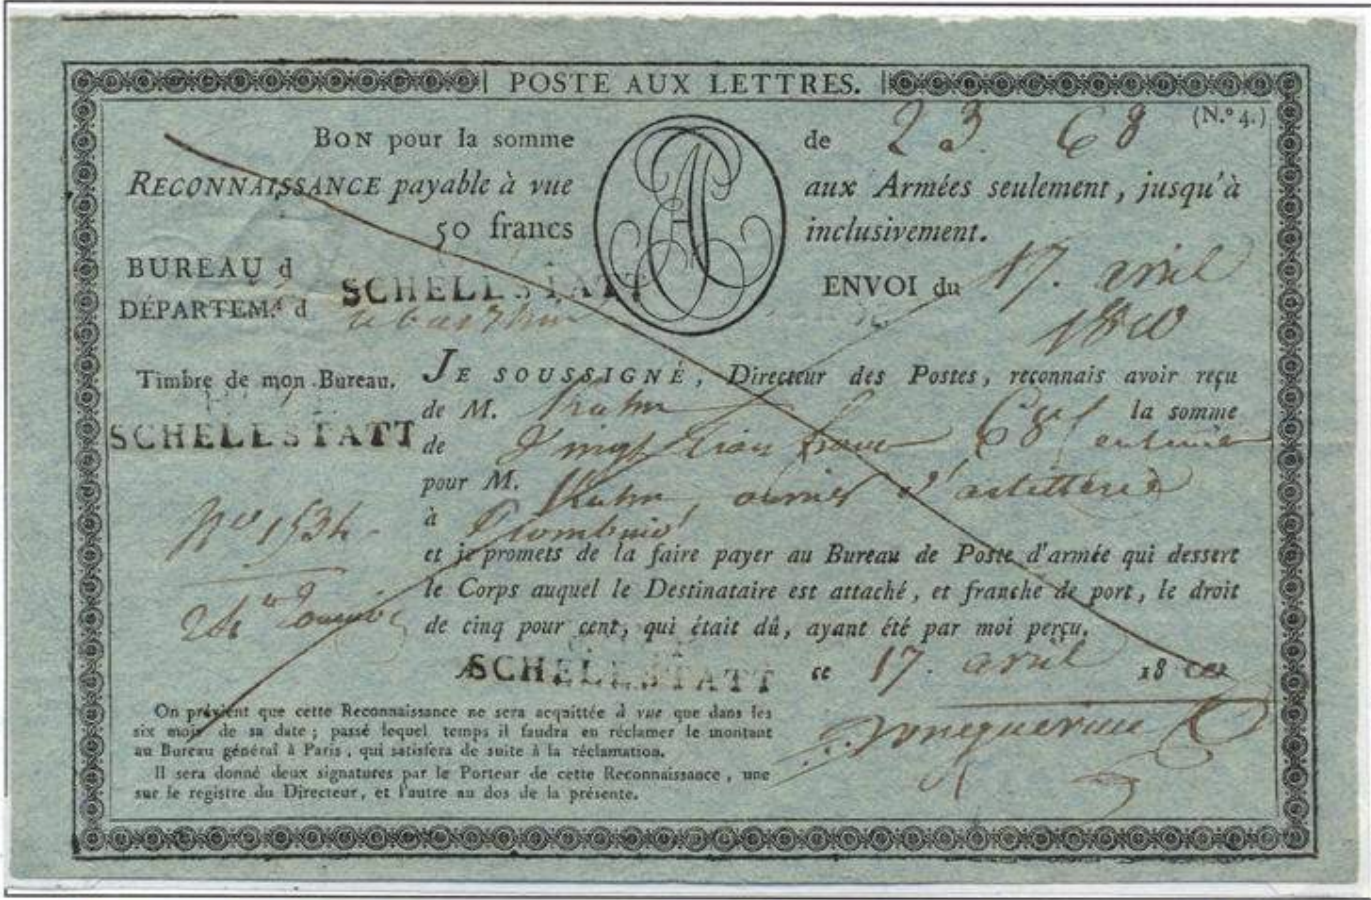 POSTE AUX LETTRES.
(N.º 4.)
BON pour la somme de 23. 68
RECONNAISSANCE payable à vue aux Armées seulement, jusqu'à
50 francs inclusivement.
BUREAU d SCHELESTATT ENVOI du 17. avril
DÉPARTEM.t d 18
Timbre de mon Bureau. JE SOUSSIGNÉ, Directeur des Postes, reconnais avoir reçu
de M. Kuhn la somme
SCHELESTATT de Vingt trois francs 68 Centimes
pour M. Kuhn, ouvrier d'artillerie
à
Nº 1534
et je promets de la faire payer au Bureau de Poste d'armée qui dessert
le Corps auquel le Destinataire est attaché, et franche de port, le droit
de cinq pour cent, qui était dû, ayant été par moi perçu.
SCHELESTATT ce 17. avril 18
On prévient que cette Reconnaissance ne sera acquittée à vue que dans les
six mois de sa date ; passé lequel temps il faudra en réclamer le montant
au Bureau général à Paris, qui satisfera de suite à la réclamation.
Il sera donné deux signatures par le Porteur de cette Reconnaissance, une
sur le registre du Directeur, et l'autre au dos de la présente.